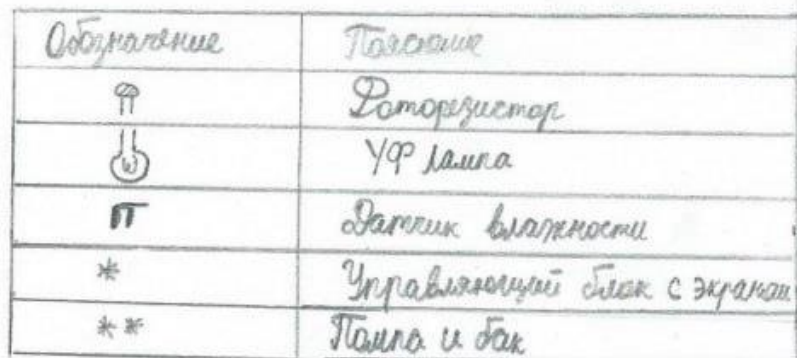 Обозначение Пояснение
Фоторезистор
УФ лампа
Датчик влажности
* Управляющий блок с экраном
** Помпа и бак